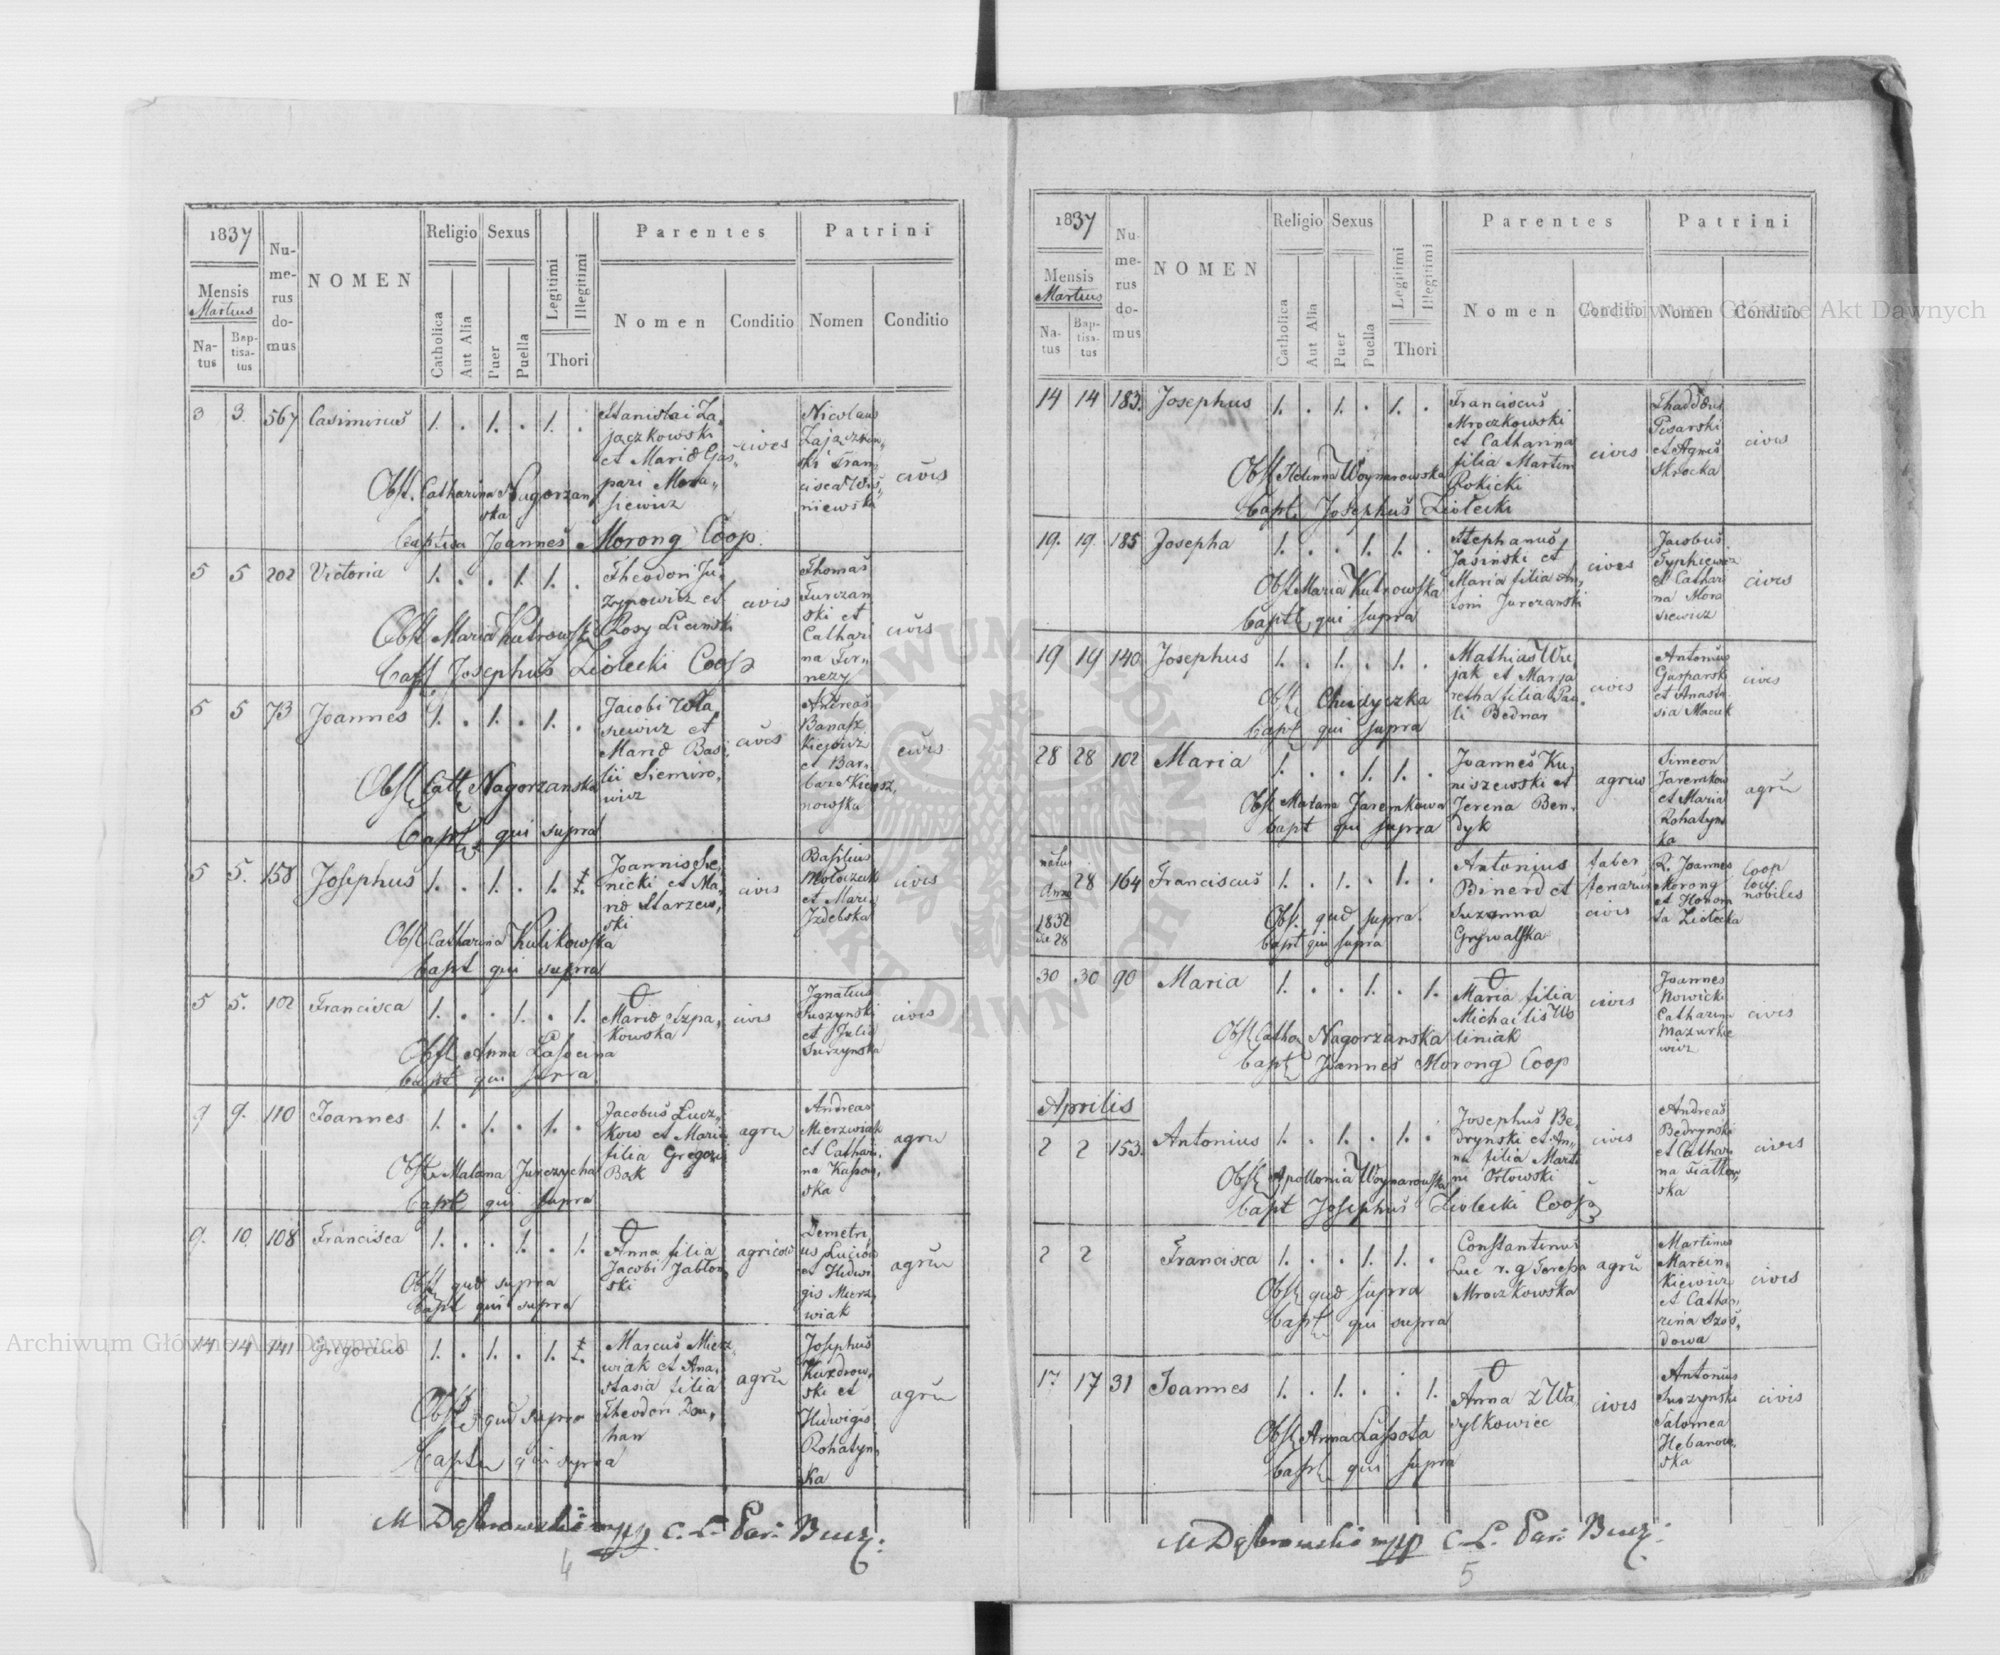 1837
Nu-
me-
rus
do-
mus
NOMEN
Religio
Sexus
Legitimi
Illegitimi
Parentes
Patrini
Mensis
Martius
Na-
tus
Bap-
tisa-
tus
Catholica
Aut Alia
Puer
Puella
Thori
Nomen
Conditio
Nomen
Conditio
3 3 567 Casimirus 1. . 1. . 1. .
Stanislai Za-
jączkowski
et Mariæ Gas-
pari Mora-
siewicz
cives
Nicolaus
Zajączkow-
ski Fran-
cisca Wiś-
niewska
civis
Obst. Catharina Nagorzan
ska
Joannes Morong Coop.
5 5 202 Victoria 1. . . 1. 1. .
Theodori Ju-
zypowicz et
Rosy Licinski
civis
Thomas
Turczan
ski et
Cathari
na
civis
Obst Maria Kutrowska
Bapt Josephus Ziołecki Coop
5 5 73 Joannes 1. . 1. . 1. .
Jacobi
siewicz et
Mariæ Basi
lii Siemiro-
wicz
civis
Andreas
Banasz
kiewicz
et Bar-
bara
nowska
civis
Obst Cath Nagorzanska
Bapt qui supra
5 5. 158 Josephus 1. . 1. . 1.
Joannis Sie-
nicki et Ma-
riæ Starzew-
ski
civis
Basilius
et Maria
Izdebska
civis
Obst Catharina Kulikowska
Bapt qui supra
5 5. 102 Francisca 1. . . 1. . 1.
Mariæ Szpa-
kowska
civis
Ignatius
Suszynski
et Julia
Suszynska
civis
Obst Anna Lasocina
Bapt qui supra
9 9. 110 Joannes 1. . 1. . 1. .
Jacobus Łucz-
kow et Maria
filia Gregorii
Bak
agru
Andreas
Mierzwiak
et Cathari-
na
ska
agru
Obst Malana Jurczycha
Bapt qui supra
9. 10. 108 Francisca 1. . . 1. . 1.
Anna filia
Jacobi Jabłon
ski
agricow
Demetri
us Luciow
et Hedwi
gis Mierz-
wiak
agru
Obst quæ supra
Bapt qui supra
14 14 141 Gregorius 1. . 1. . 1.
Marcus Mierz
wiak et Ana-
stasia filia
Theodori
han
agru
Josephus
ski et
Hedwigis
Rohatyn-
ka
agru
Obst quæ supra
Bapt qui supra
M Dąbrowski mpp C. L. Par: Bucz:
4
1837
Nu-
me-
rus
do-
mus
NOMEN
Religio
Sexus
Legitimi
Illegitimi
Parentes
Patrini
Mensis
Martius
Na-
tus
Bap-
tisa-
tus
Catholica
Aut Alia
Puer
Puella
Thori
Nomen
Conditio
Nomen
Conditio
14 14 183. Josephus 1. . 1. . 1. .
Franciscus
Mroczkowski
et Catharina
filia Martini
Rokicki
civis
Thaddeus
Pisarski
et Agnes
Skrocka
civis
Obst Helena Woynarowska
Bapt Josephus Ziołecki
19. 19. 185 Josepha 1. . . 1. 1. .
Stephanus
Jasinski et
Maria filia An-
toni Jurczanski
cives
Jacobus
et Cathari
na Mora
siewicz
civis
Obst Maria Kutrowska
Bapt qui supra
19 19 140 Josephus 1. . 1. . 1. .
Mathias
jak et Marga
retha filia Pau-
li Bednar
civis
Antonius
Gasparski
et Anasta
sia Maciuk
civis
Obst Chudyczka
Bapt qui supra
28 28 102 Maria 1. . . 1. 1. .
Joannes Ku-
niszewski et
Jerena Ben-
dyk
agru
Simeon
Jaremkow
et Maria
Rohatyns
ka
agru
Obst Malana Jaremkowa
Bapt qui supra
natus
Anno
1832
28
28 164 Franciscus 1. . 1. . 1. .
Antonius
Binerd et
Suzanna
Grywalska
faber
ferrarius
civis
R. Joannes
Morong
et Honora
ta Ziołecka
Coop
loci
nobiles
Obst. quæ supra.
Bapt qui supra
30 30 90 Maria 1. . . 1. . 1.
Maria filia
Michailis Wo
liniak
civis
Joannes
Nowicki
Catharina
Mazurkie
wicz
civis
Obst Catha Nagorzanska
Bapt Joannes Morong Coop
Aprilis
2 2 153. Antonius 1. . 1. . 1. .
Josephus Be-
drynski et An-
na filia Marti
ni Orłowski
civis
Andreas
Bedrynski
et Cathari
na
ska
cives
Obst Apollonia Woynarowska
Bapt Josephus Ziołecki Coop
2 2 Francisca 1. . . 1. 1. .
Constantinus
Luc r. g Teresa
Mroczkowska
agru
Martinus
Marcin-
kiewicz
et Catha-
rina
dowa
civis
Obst quæ supra
Bapt qui supra
17 17 31 Joannes 1. . 1. . . 1.
Anna z Wa
sylkowiec
civis
Antonius
Suszynski
Salomea
ska
civis
Obst Anna Lassota
Bapt qui supra
M Dąbrowski mpp C. L. Par: Bucz:
5
Archiwum Główne Akt Dawnych
Archiwum Główne Akt Dawnych
ARCHIWUM GŁÓWNE AKT DAWNYCH